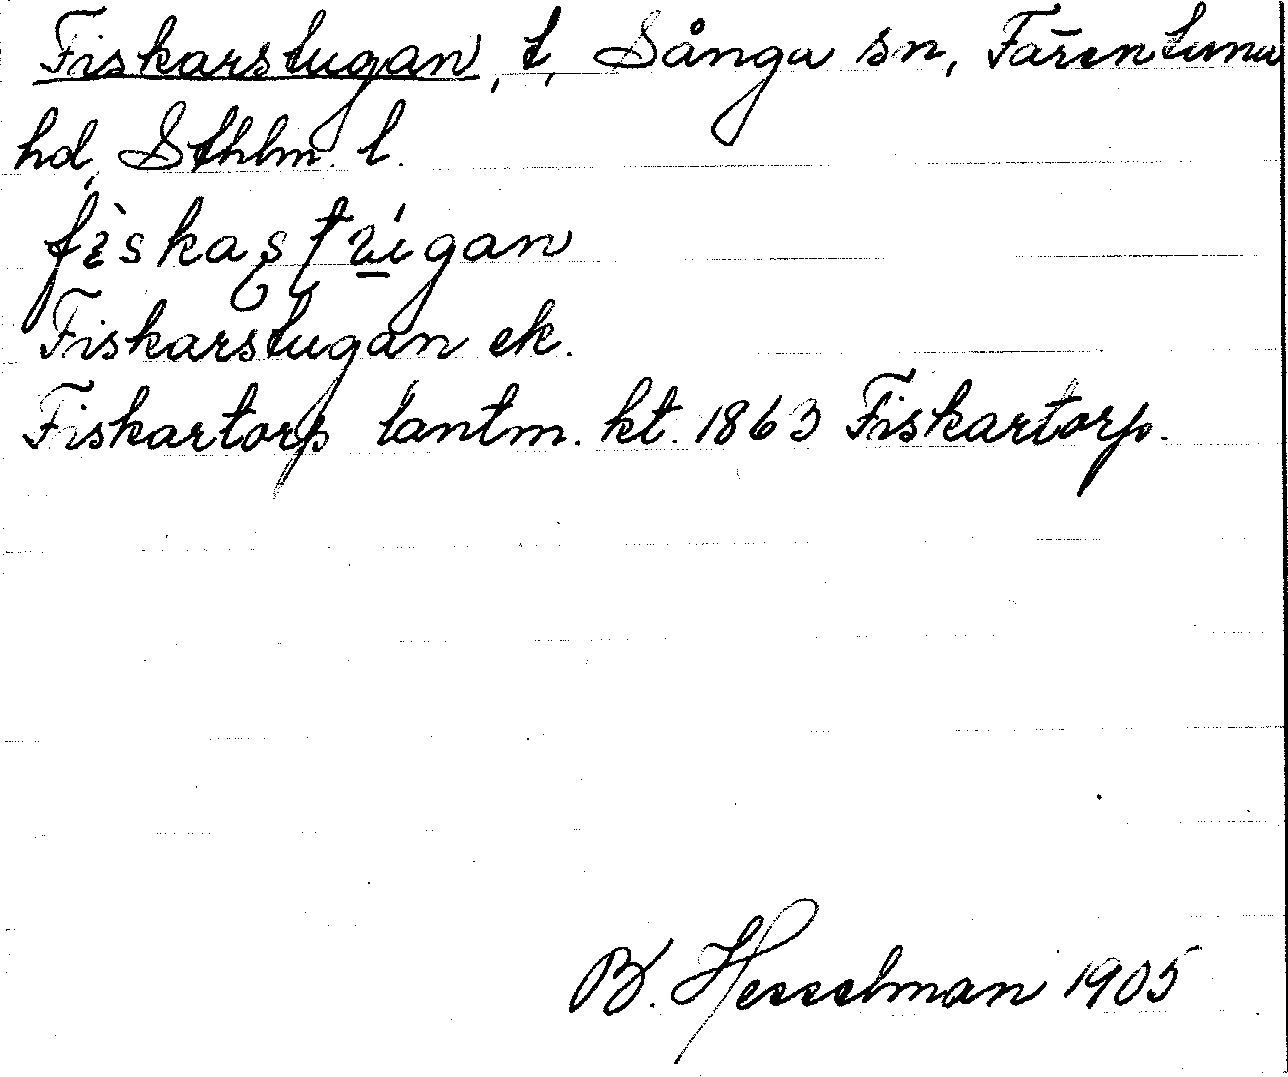 Fiskarstugan, t, Sånga sn, Färentuna
hd, Sthlm. l.
Fiskarstugan ek.
Fiskartorp lantm. kt. 1863 Fiskartorp.
B. Hesselman 1905